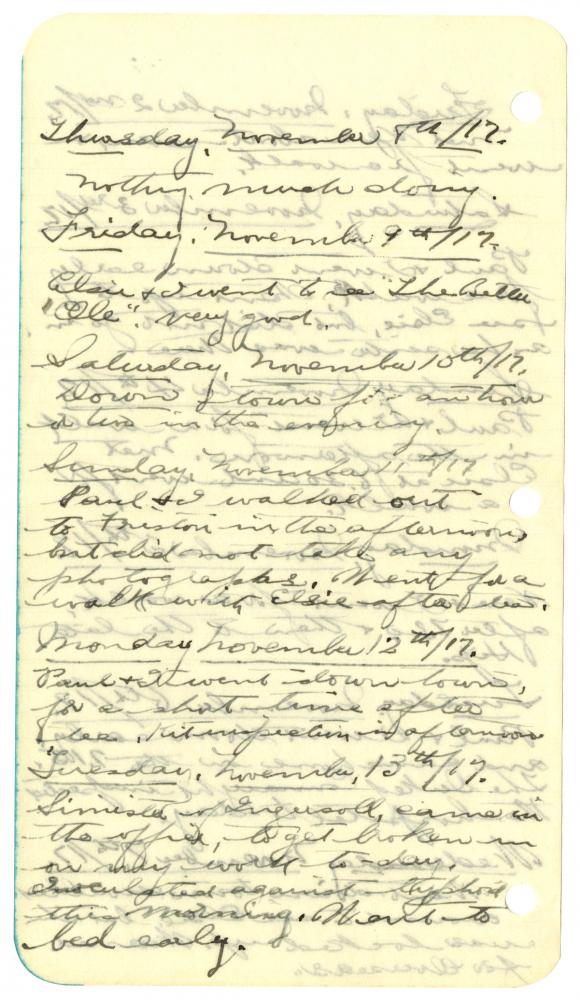 Thursday, November 8th/17.
Nothing much doing.
Friday, November 9th/17.
Elsie & I went to see "The Better
"Ole". very good.
Saturday, November 10th/17.
Down town for an hour
or two in the evening.
Sunday, November 11th/17
Paul & I walked out
to Friston in the afternoon,
but did not take any
photographs. Went for a
walk with Elsie after tea.
Monday November 12th/17.
Paul & I went down town,
for a short time after
tea. Kit inspection in afternoon
Tuesday, November, 13th/17.
Simister of Ingersoll, came in
the office, to get broken in
on my work to-day.
Inoculated against typhoid
this morning. Went to
bed early.